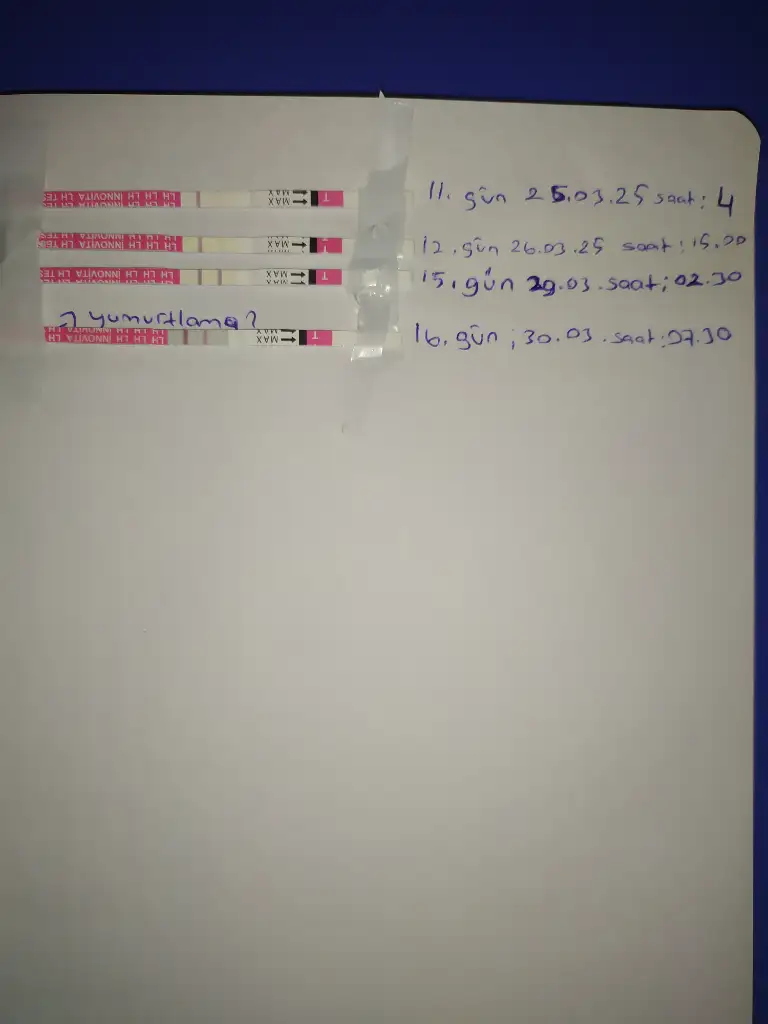 LH LH LH INNOVITA LH TES
MAX
T
11. gün 25.03.25 saat: 4
LH LH LH INNOVITA LH TES
T
12. gün 26.03.25 saat: 15.00
LH LH LH INNOVITA LH TES
MAX
T
15. gün 29.03. saat; 02.30
→ yumurtlama?
LH LH LH INNOVITA LH
MAX
T
16. gün ; 30.03. saat: 07.30